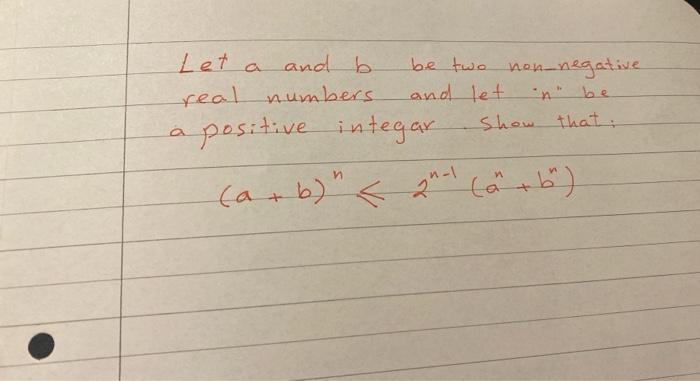 Let a and b be two non-negative
real numbers and let "n" be
a positive integar. Show that:
(a + b)ⁿ ≤ 2ⁿ⁻¹ (aⁿ + bⁿ)